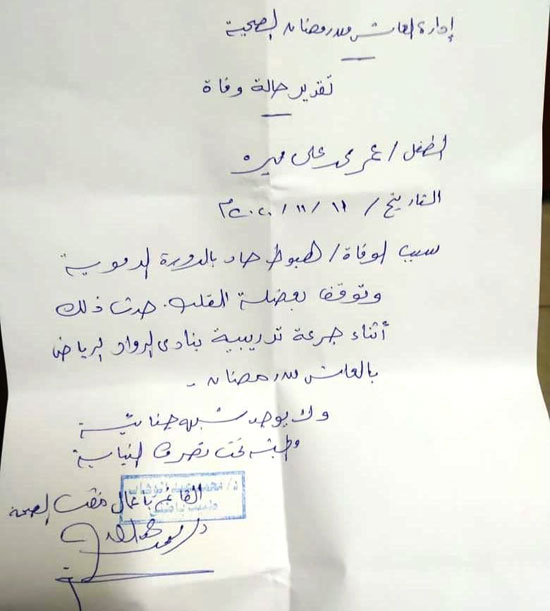 إدارة العاشر من رمضان الصحية
تقرير حالة وفاة
الطفل / عمر محمد على
التاريخ / ١١ / ١١ / ٢٠٢٠م
سبب الوفاة / هبوط حاد بالدورة الدموية
وتوقف بعضلة القلب. حدث ذلك
أثناء جرعة تدريبية بنادى الرواد الرياضى
بالعاشر من رمضان -
ولا يوجد شبهه جنائية
والجثه تحت تصرف النيابة
د/ محمد
القائم بأعمال مفتش الصحة